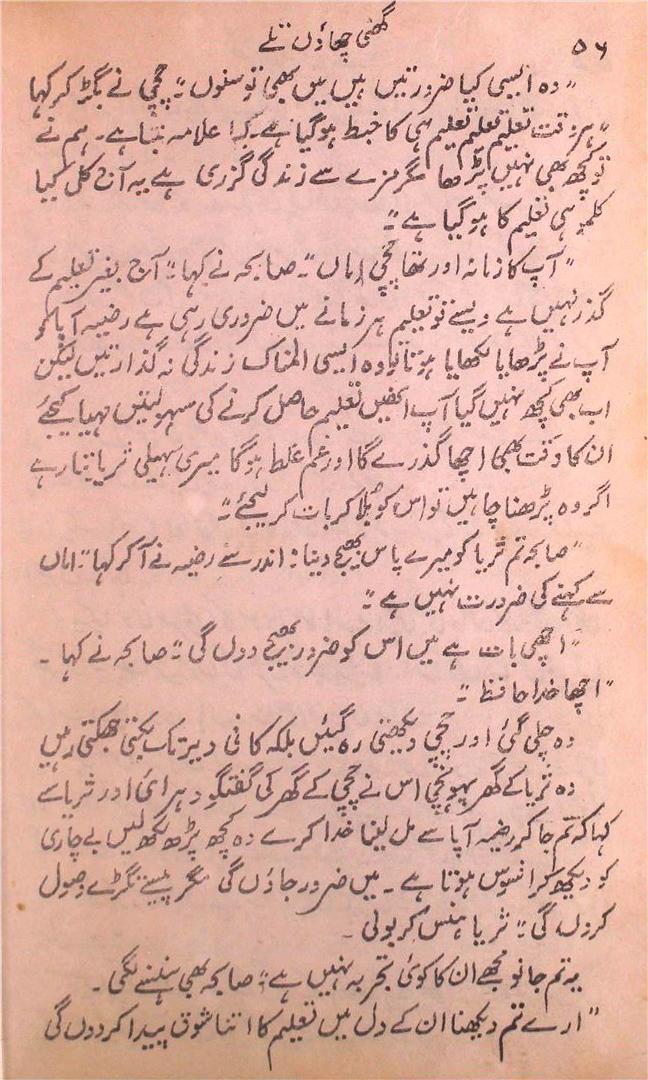 گھنی چھاؤں تلے
۵۶
”وہ ایسی کیا ضرورتیں ہیں میں بھی تو سنوں“۔ چچی نے بگڑ کر کہا
”ہر وقت تعلیم تعلیم تعلیم ہی کا خبط ہو گیا ہے۔ کیا علامہ بننا ہے۔ ہم نے
تو کچھ بھی نہیں پڑھا مگر مزے سے زندگی گزری ہے یہ آج کل کیا
کلمہ ہی تعلیم کا ہو گیا ہے“۔
”آپ کا زمانہ اور تھا چچی اماں“۔ صابحہ نے کہا۔ ”آج بغیر تعلیم کے
گذر نہیں ہے ویسے تو تعلیم ہر زمانے میں ضروری رہی ہے رضیہ آپا کو
آپ نے پڑھایا لکھایا ہوتا تو وہ ایسی المناک زندگی نہ گذارتیں لیکن
اب بھی کچھ نہیں گیا آپ انھیں تعلیم حاصل کرنے کی سہولتیں مہیا کیجئے
ان کا وقت بھی اچھا گذرے گا اور غم غلط ہوگا میری سہیلی ثریا تیار ہے
اگر وہ پڑھنا چاہیں تو اس کو بلا کر بات کر لیجئے“۔
”صابحہ تم ثریا کو میرے پاس بھیج دینا“۔ اندر سے رضیہ نے آ کر کہا ”اماں
سے کہنے کی ضرورت نہیں ہے“۔
”اچھی بات ہے میں اس کو ضرور بھیج دوں گی“۔ صابحہ نے کہا۔
”اچھا خدا حافظ“۔
وہ چلی گئی اور چچی دیکھتی رہ گئیں بلکہ کافی دیر تک بکتی جھکتی رہیں
وہ ثریا کے گھر پہونچی اس نے چچی کے گھر کی گفتگو دہرائی اور ثریا سے
کہا کہ تم جا کر رضیہ آپا سے مل لینا خدا کرے وہ کچھ پڑھ لکھ لیں بے چاری
کو دیکھ کر افسوس ہوتا ہے۔ میں ضرور جاؤں گی مگر پیسے تگڑے وصول
کروں گی“۔ ثریا ہنس کر بولی۔
یہ تم جانو مجھے ان کا کوئی تجربہ نہیں ہے“۔ صابحہ بھی ہنسنے لگی۔
”ارے تم دیکھنا ان کے دل میں تعلیم کا اتنا شوق پیدا کر دوں گی